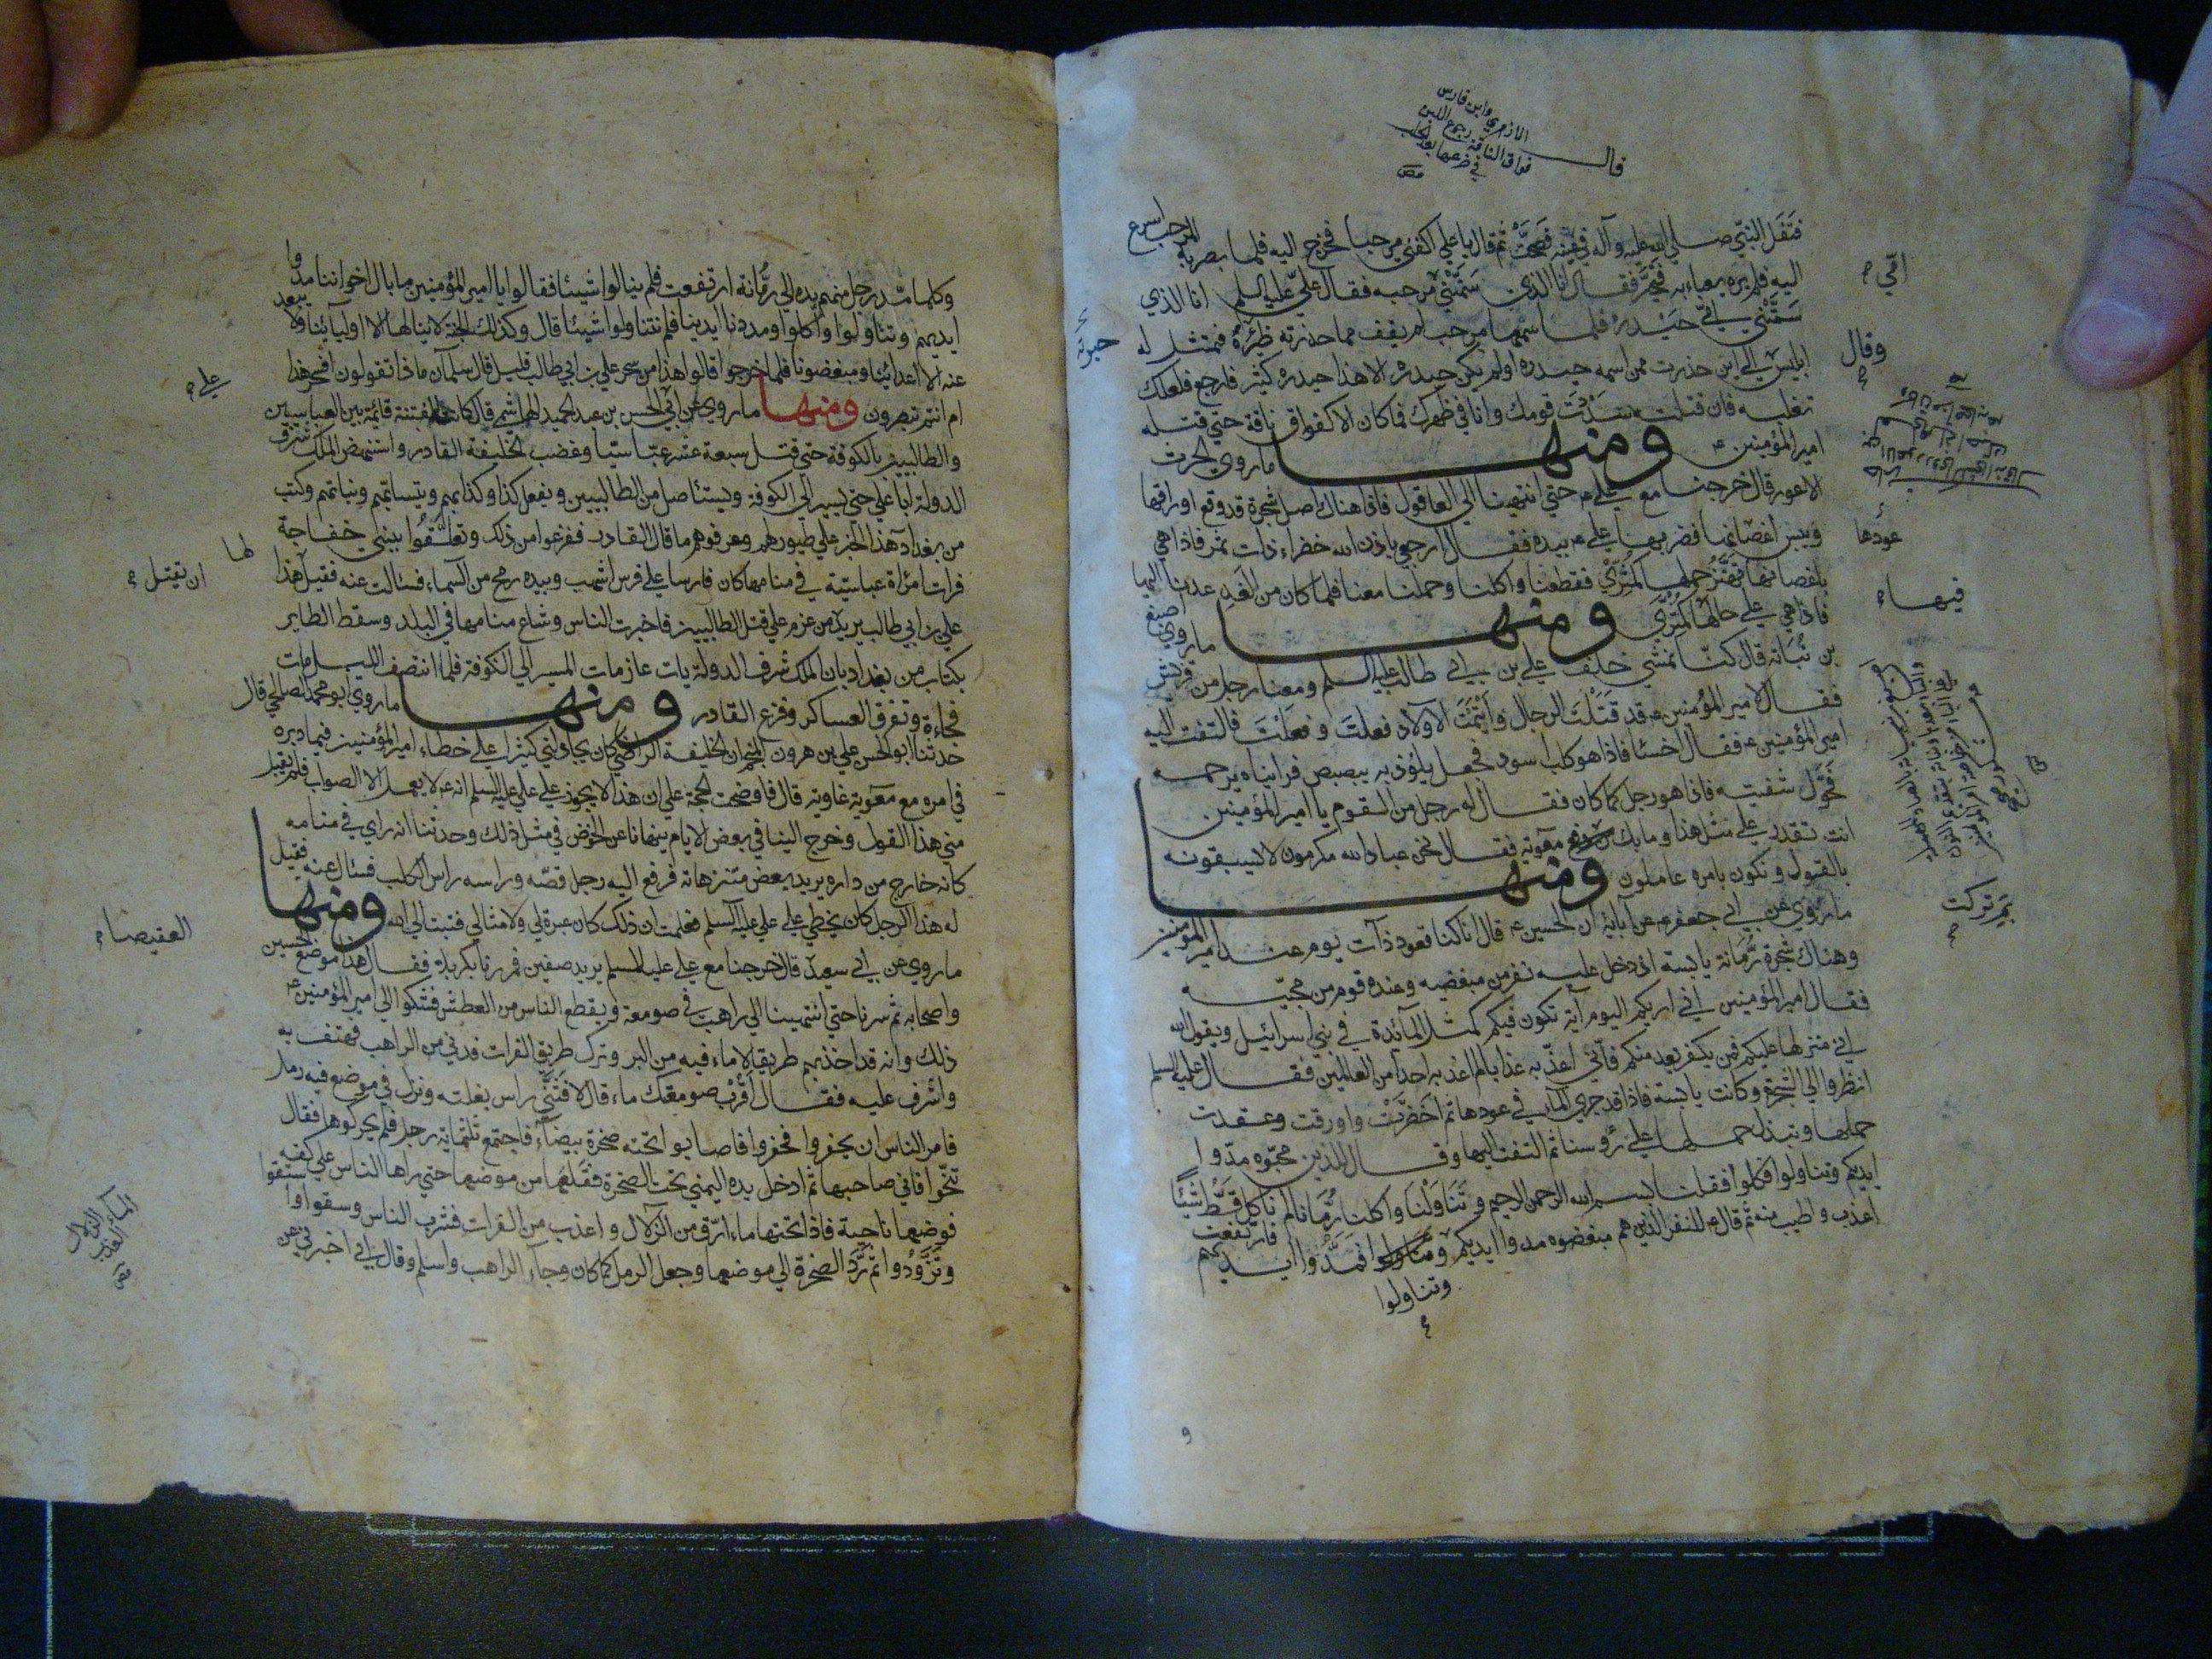 قال الازهري وابن فارس
فواق الناقة رجوع اللبن
في ضرعها بعد الحلب
فتفل النبي صلي الله عليه وآله في عينه فصحت ثم قال يا علي اكفني مرحبا فخرج اليه فلما بصر به مرحب اسرع
اليه فلم يره يعباء به فتحير فقال انا الذي سمتني مرحبه فقال علي عليه السلم انا الذي
سمتني اني حيدره فلما سمعها مرحب لم يقف مما حذرته ظئره فتمثل له
ابليس الي اين حذرت ممن اسمه حيدره اولم يكن حيدره الا هذا حيدره كثير فارجع فلعلك
تغلبه فان قتلته سدت قومك وانا في ظهرك فما كان الا كفواق ناقة حتي قتله
امير المؤمنين ع ومنها ماروي الحرث
الاعور قال خرجنا مع علي ع حتي انتهينا الي العاقول فاذا هناك اصل شجرة قد وقع اوراقها
ويبس اغصانها فضربها علي ع بيده فقال ارجعي باذن الله خضراء ذات ثمر فاذا هي
باغصانها تهتز حملها الكمثري فقطعنا واكلنا وحملنا معنا فلما كان من الغد عدنا اليها
فاذا هي علي حالها الكمثري ومنها ماروي اصبغ
بن نباته قال كنا نمشي خلف علي بن ابي طالب عليه السلم ومعنا رجل من قريش
فقال لامير المؤمنين ع قد قتلت الرجال وايتمت الاولاد فعلت وفعلت فالتفت اليه
امير المؤمنين ع فقال اخسا فاذا هو كلب اسود فجعل يلوذ به يبصبص فرايناه يرحمه
فحول شفيته فاذا هو رجل كما كان فقال له رجل من القوم يا امير المؤمنين
انت تقدر علي مثل هذا وما بك معوية فقال نحن عباد الله مكرمون لا نسبقونه
بالقول ونكون بامره عاملون ومنها
ماروي عن ابي جعفر ع عن آبايه ان الحسين ع قال انا كنا قعود ذات يوم عند امير المؤمنين
وهناك شجرة رمانة يابسة اذ دخل عليه نفر من مبغضيه وعنده قوم من محبيه
فقال امير المؤمنين اني اريكم اليوم آية تكون فيكم كمثل المائدة في بني اسرائيل ويقول الله
اني منزلها عليكم فمن يكفر بعد منكم فاني اعذبه عذابا لا اعذبه احدا من العالمين فقال عليه السلم
انظروا الي الشجرة وكانت يابسة فاذا قد جري الماء في عودها ثم اخضرت واورقت وعقدت
حملها وتبدل حملها علي رؤسنا ثم التفت اليها وقال للذين محبوه مدوا
ايديكم وتناولوا فكلوا فقلنا بسم الله الرحمن الرحيم وتناولنا واكلنا رمانا لم ناكل قط شيئا
اعذب واطيب منه ثم قال ع للنفر الذين هم مبغضوه مدوا ايديكم وتناولوا فمدوا ايديهم فارتفعت
وتناولوا
اقي
وقال
عودها
فيها
لم تركت
حيرته
وكلما مد رجل منهم يده الي رمانة ارتفعت فلم ينالوا شيئا فقالوا يا امير المؤمنين ما بال اخواننا مدوا
ايديهم وتناولوا واكلوا ومددنا ايدينا فلم نتناولوا شيئا قال وكذلك الجنة لا ينالها الا اوليائنا ولا يبعد
عنه الا اعدائنا ومبغضونا فلما خرجوا قالوا هذا من سحر علي بن ابي طالب قليل قال سلمان ماذا تقولون افسحر هذا
ام انتم لا تبصرون ومنها ماروي عن ابي الحسن بن عبد الحميد الهاشمي قال كانت الفتنة قائمة بين العباسيين
والطالبيين بالكوفة حتي قتل سبعة عشر عباسيا وغضب الخليفة القادر واستنهض الملك شرف
الدولة ابا علي حتي يسير الي الكوفة ويستئاصل من الطالبيين ويفعل كذا وكذا بهم وبنسائهم وبناتهم وكتب
من بغداد هذا الخبر علي طيور لهم وعرفوهم ما قال القادر ففزعوا من ذلك وتعلقوا ببني خفاجة
فرات امراة عباسية في منامها كان فارسا علي فرس اشهب وبيده رمح من السماء فسئالت عنه فقيل هذا
علي بن ابي طالب يريد من عزم علي قتل الطالبيين فاخبرت الناس وشاع منامها في البلد وسقط الطاير
بكتاب من بغداد بان الملك شرف الدولة بات عازمات المسير الي الكوفة فلما انتصف الليل مات
فجاءة وتفرق العساكر وفزع القادر ومنها ماروي ابو محمد الصالحي قال
حدثنا ابو الحسن علي بن هرون المنجم ان الخليفة الراضي كان يجادلني كثيرا علي خطاء امير المؤمنين فيما دبره
في امره مع معوية غاوية قال فاوضحت الحجة علي ان هذا لا يجوز علي علي عليه السلم انه ع لا يعمل الا الصواب فلم يقبل
مني هذا القول وخرج الينا في بعض الايام ينهانا عن الخوض في مثل ذلك وحدثنا انه راي في منامه
كانه خارج من داره يريد بعض متنزهاته فرفع اليه رجل قصه وراسه راس الكلب فسئال عنه فقيل
له هذا الرجل كان يخطي علي علي عليه السلم فعلمت ان ذلك كان عبرة لي ولامثالي فتبت الي الله ومنها
ماروي عن ابي سعيد قال خرجنا مع علي عليه السلم يريد صفين فمررنا بكربلاء فقال هذا موضع الحسين
واصحابه ثم سرنا حتي انتهينا الي راهب في صومعة ويقطع الناس من العطش فشكوا الي امير المؤمنين ع
ذلك وانه قد اخذ بهم طريقا لا ماء فيه من البر وترك طريق الفرات فدني من الراهب فهتف به
واشرف عليه فقال اقرب صومعتك ماء قال لا فثني راس بغلته ونزل في موضع فيه رمل
فامر الناس ان يحفروا فحفروا فاصابوا تحته صخرة بيضاء فاجتمع ثلثماية رجل فلم يحركوها فقال
تنحوا فاني صاحبها ثم ادخل يده اليمني تحت الصخرة فقلعها من موضعها حتي راها الناس علي كفه
فوضعها ناحية فاذا تحتها ماء ارق من الزلال واعذب من الفرات فشرب الناس وسقوا واستقوا
وتزودوا ثم رد الصخرة الي موضعها وجعل الرمل كما كان وجاء الراهب واسلم وقال اني اخبرني عن
علي
لها
ان تقتل
العقيصاء
الماء الزلال
العذب